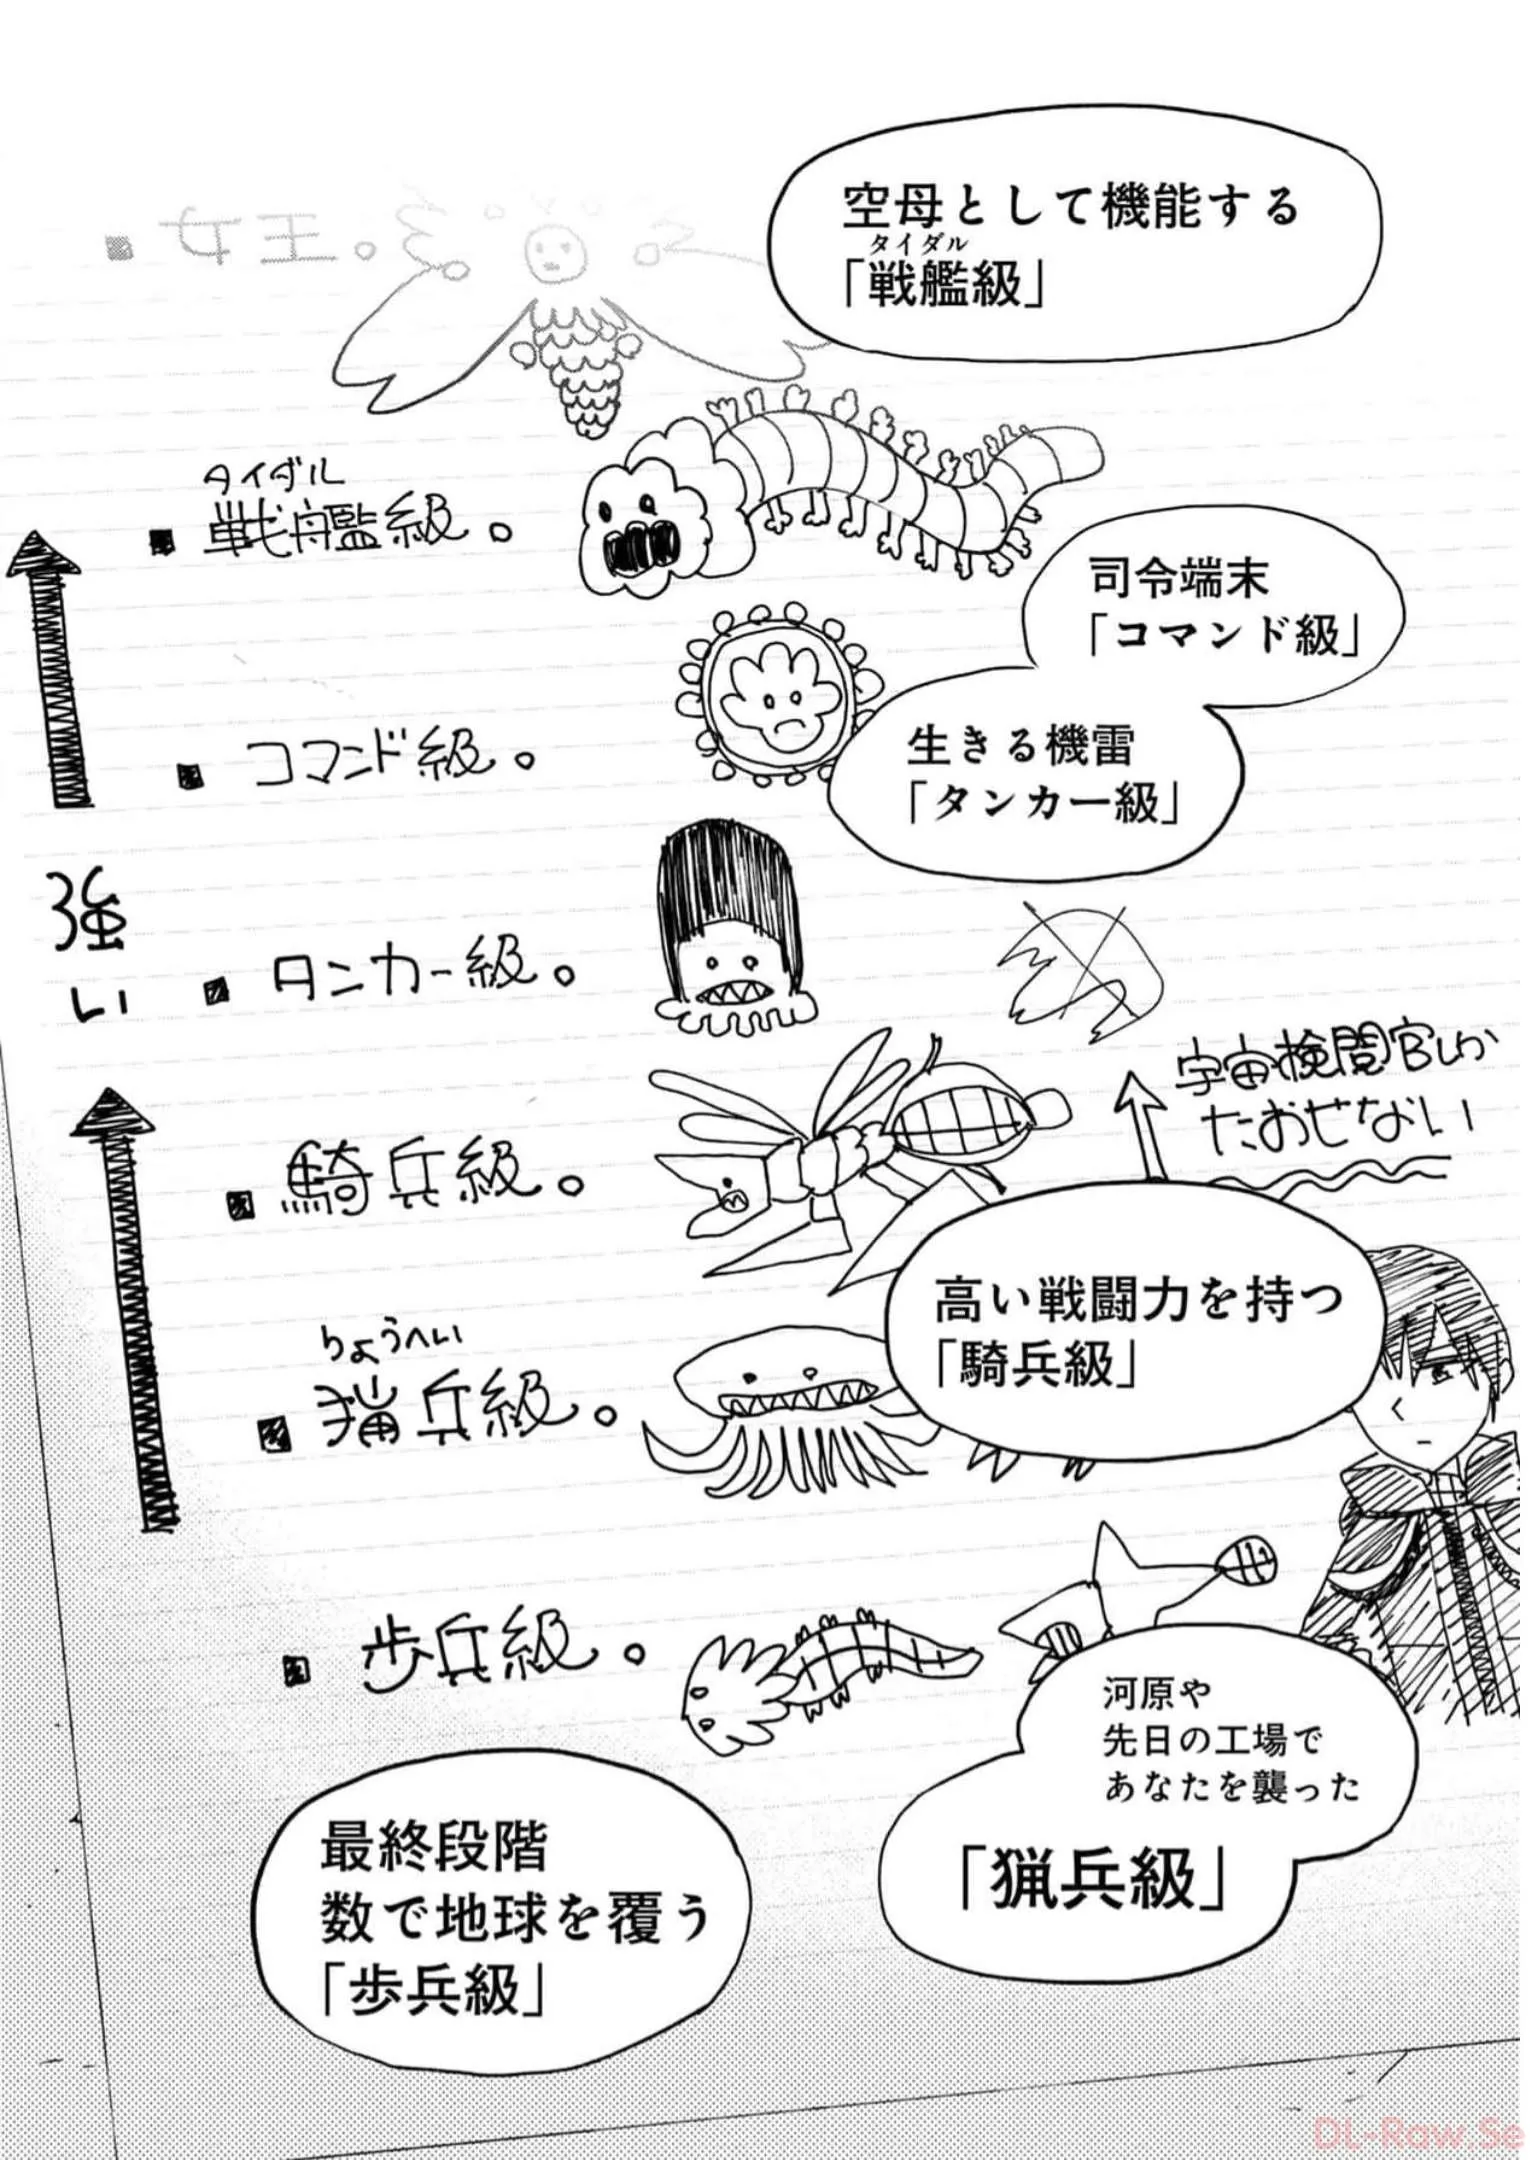 空母として機能する
タイダル
「戦艦級」
女王。
タイダル
戦艦級。
司令端末
「コマンド級」
コマンド級。
生きる機雷
「タンカー級」
強い
タンカー級。
宇宙検閲官しか
たおせない
騎兵級。
高い戦闘力を持つ
「騎兵級」
りょうへい
猟兵級。
歩兵級。
河原や
先日の工場で
あなたを襲った
「猟兵級」
最終段階
数で地球を覆う
「歩兵級」
DL-Raw.Se